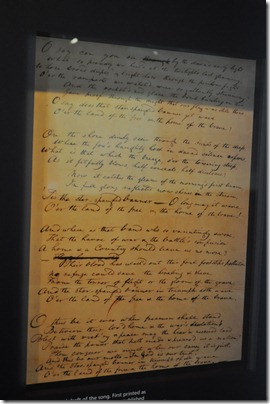 O say can you see by the dawn's early light
What so proudly we hail'd at the twilight's last gleaming,
Whose broad stripes & bright stars through the perilous fight
O'er the ramparts we watch'd, were so gallantly streaming?
And the rocket's red glare, the bomb bursting in air,
Gave proof through the night that our flag was still there,
O say does that star-spangled banner yet wave
O'er the land of the free & the home of the brave?
On the shore dimly seen through the mists of the deep,
Where the foe's haughty host in dread silence reposes,
What is that which the breeze, o'er the towering steep,
As it fitfully blows, half conceals, half discloses?
Now it catches the gleam of the morning's first beam,
In full glory reflected now shines in the stream,
'Tis the star-spangled banner — O long may it wave
O'er the land of the free & the home of the brave!
And where is that band who so vauntingly swore,
That the havoc of war & the battle's confusion
A home & a Country should leave us no more?
Their blood has wash'd out their foul footstep's pollution
No refuge could save the hireling & slave
From the terror of flight or the gloom of the grave,
And the star-spangled banner in triumph doth wave
O'er the land of the free & the home of the brave.
O thus be it ever when freemen shall stand
Between their lov'd home & the war's desolation!
Blest with vict'ry & peace may the heav'n rescued land
Praise the power that hath made & preserv'd us a nation!
Then conquer we must, when our cause it is just,
And this be our motto — In God is our trust,
And the star-spangled banner in triumph shall wave
O'er the land of the free & the home of the brave.
draft of the song. First printed as
published